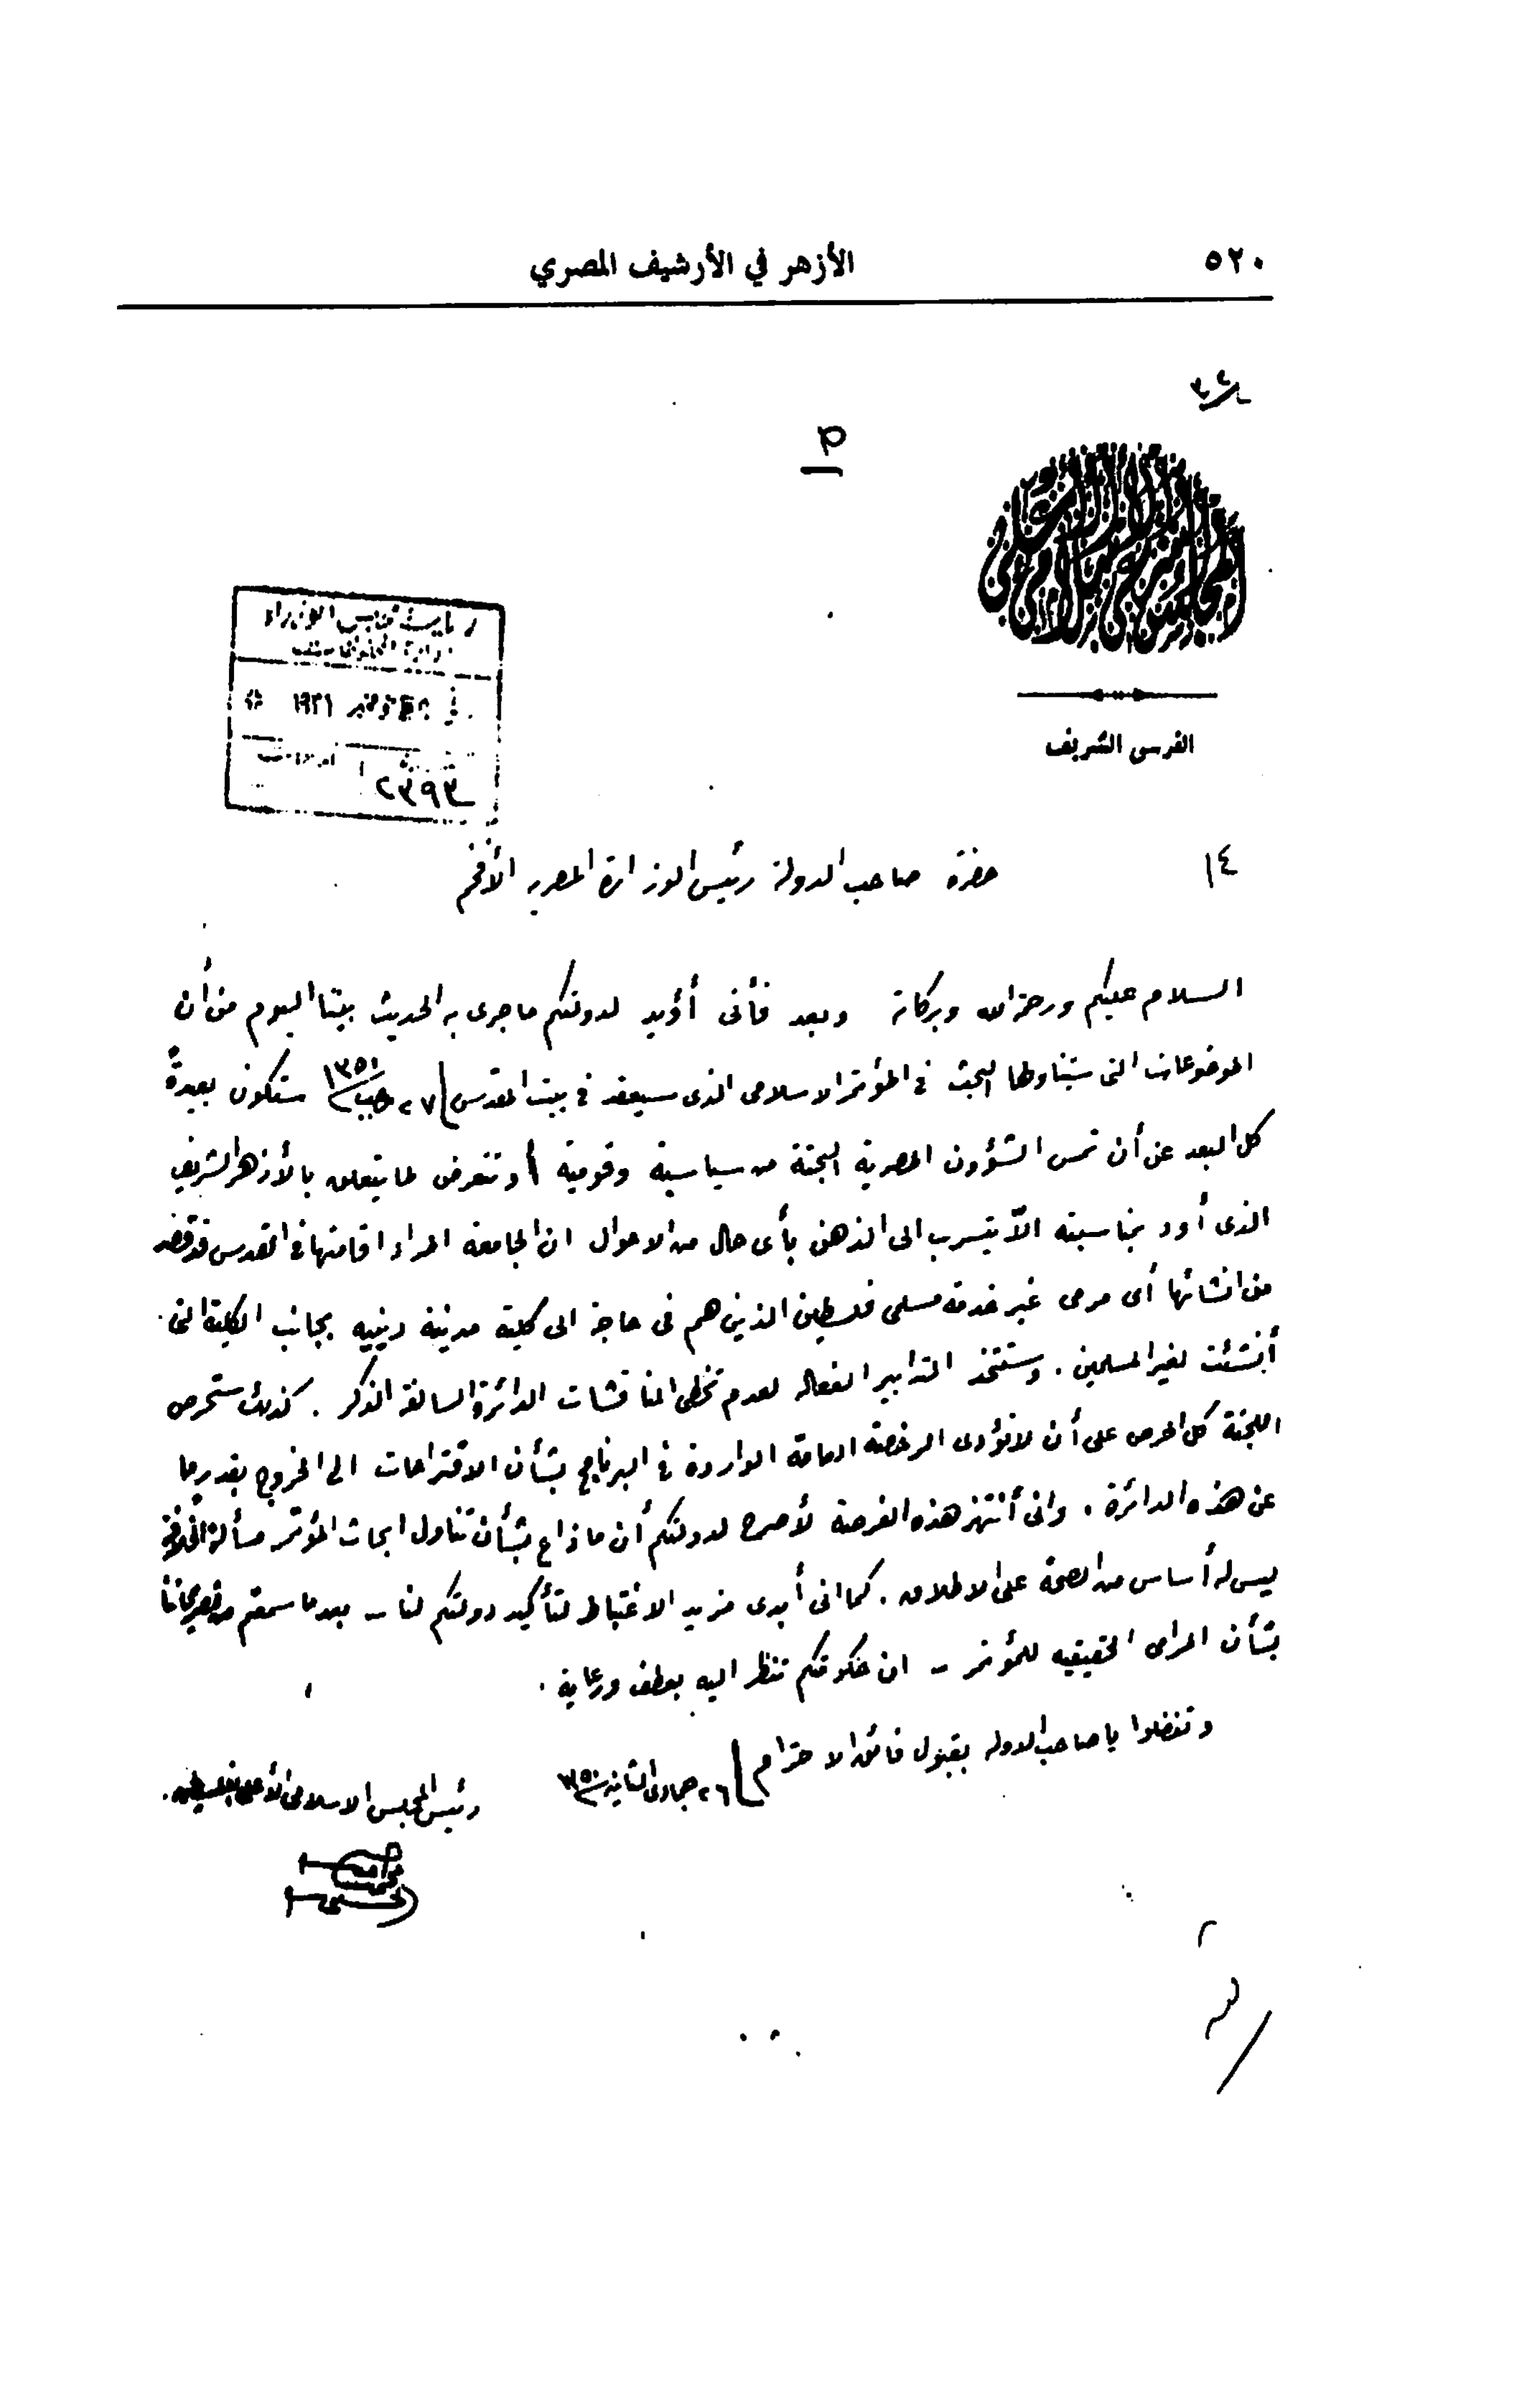 ٥٢٠
الأزهر في الأرشيف المصري
القدس الشريف
رئاسة مجلس الوزراء
نوفمبر ١٩٣١
٢٣٩٣
١٤
حضرة صاحب الدولة رئيس الوزارة المصريه الأفخم
السلام عليكم ورحمة الله وبركاته وبعد فأنى أؤيد لدولتكم ما جرى به الحديث بيننا اليوم من أن
الموضوعات التى سيتناولها البحث فى المؤتمر الاسلامى الذى سيعقد فى بيت المقدس ٢٧ رجب ستكون بعيدةً
كل البعد عن أن تمس الشؤون المصرية البحتة من سياسية وقومية أو تتعرض لما يتعلق بالأزهر الشريف
الذى أود بمناسبته ألاّ يتسرب الى الذهن بأى حال من الاحوال ان الجامعة المراد اقامتها فى القدس قد قصد
من انشائها أى مرمى غير خدمة مسلمى فلسطين الذين هم فى حاجة الى كلية مدنية دينيه بجانب الكلية التى
أنشئت لغير المسلمين . وستتخذ التدابير الفعاله لعدم تخطى المناقشات الدائرة السالفة الذكر . كذلك ستحرص
اللجنة كل الحرص على أن لا تؤدى الرخصة العامة الواردة فى البرنامج بشأن الاقتراحات الى الخروج بقدر ما
عن هذه الدائرة . وانى أنتهز هذه الفرصة لأصرح لدولتكم أن ما ذاع بشأن تناول ابحاث المؤتمر مسألة الخلافة
ليس له أساس من الصحة على الاطلاق . كما انى أبدى مزيد الاغتباط لتأكيد دولتكم لنا - بعد ما سمعتم من تصريحاتنا
بشأن المرامى الحقيقيه للمؤتمر - ان حكومتكم تنظر اليه بعطف ورعاية .
وتفضلوا يا صاحب الدوله بقبول فائق الاحترام ٢٦ جمادى الثانية ١٣٥٠
رئيس المجلس الاسلامى الأعلى بفلسطين
محمد امين
الحسينى